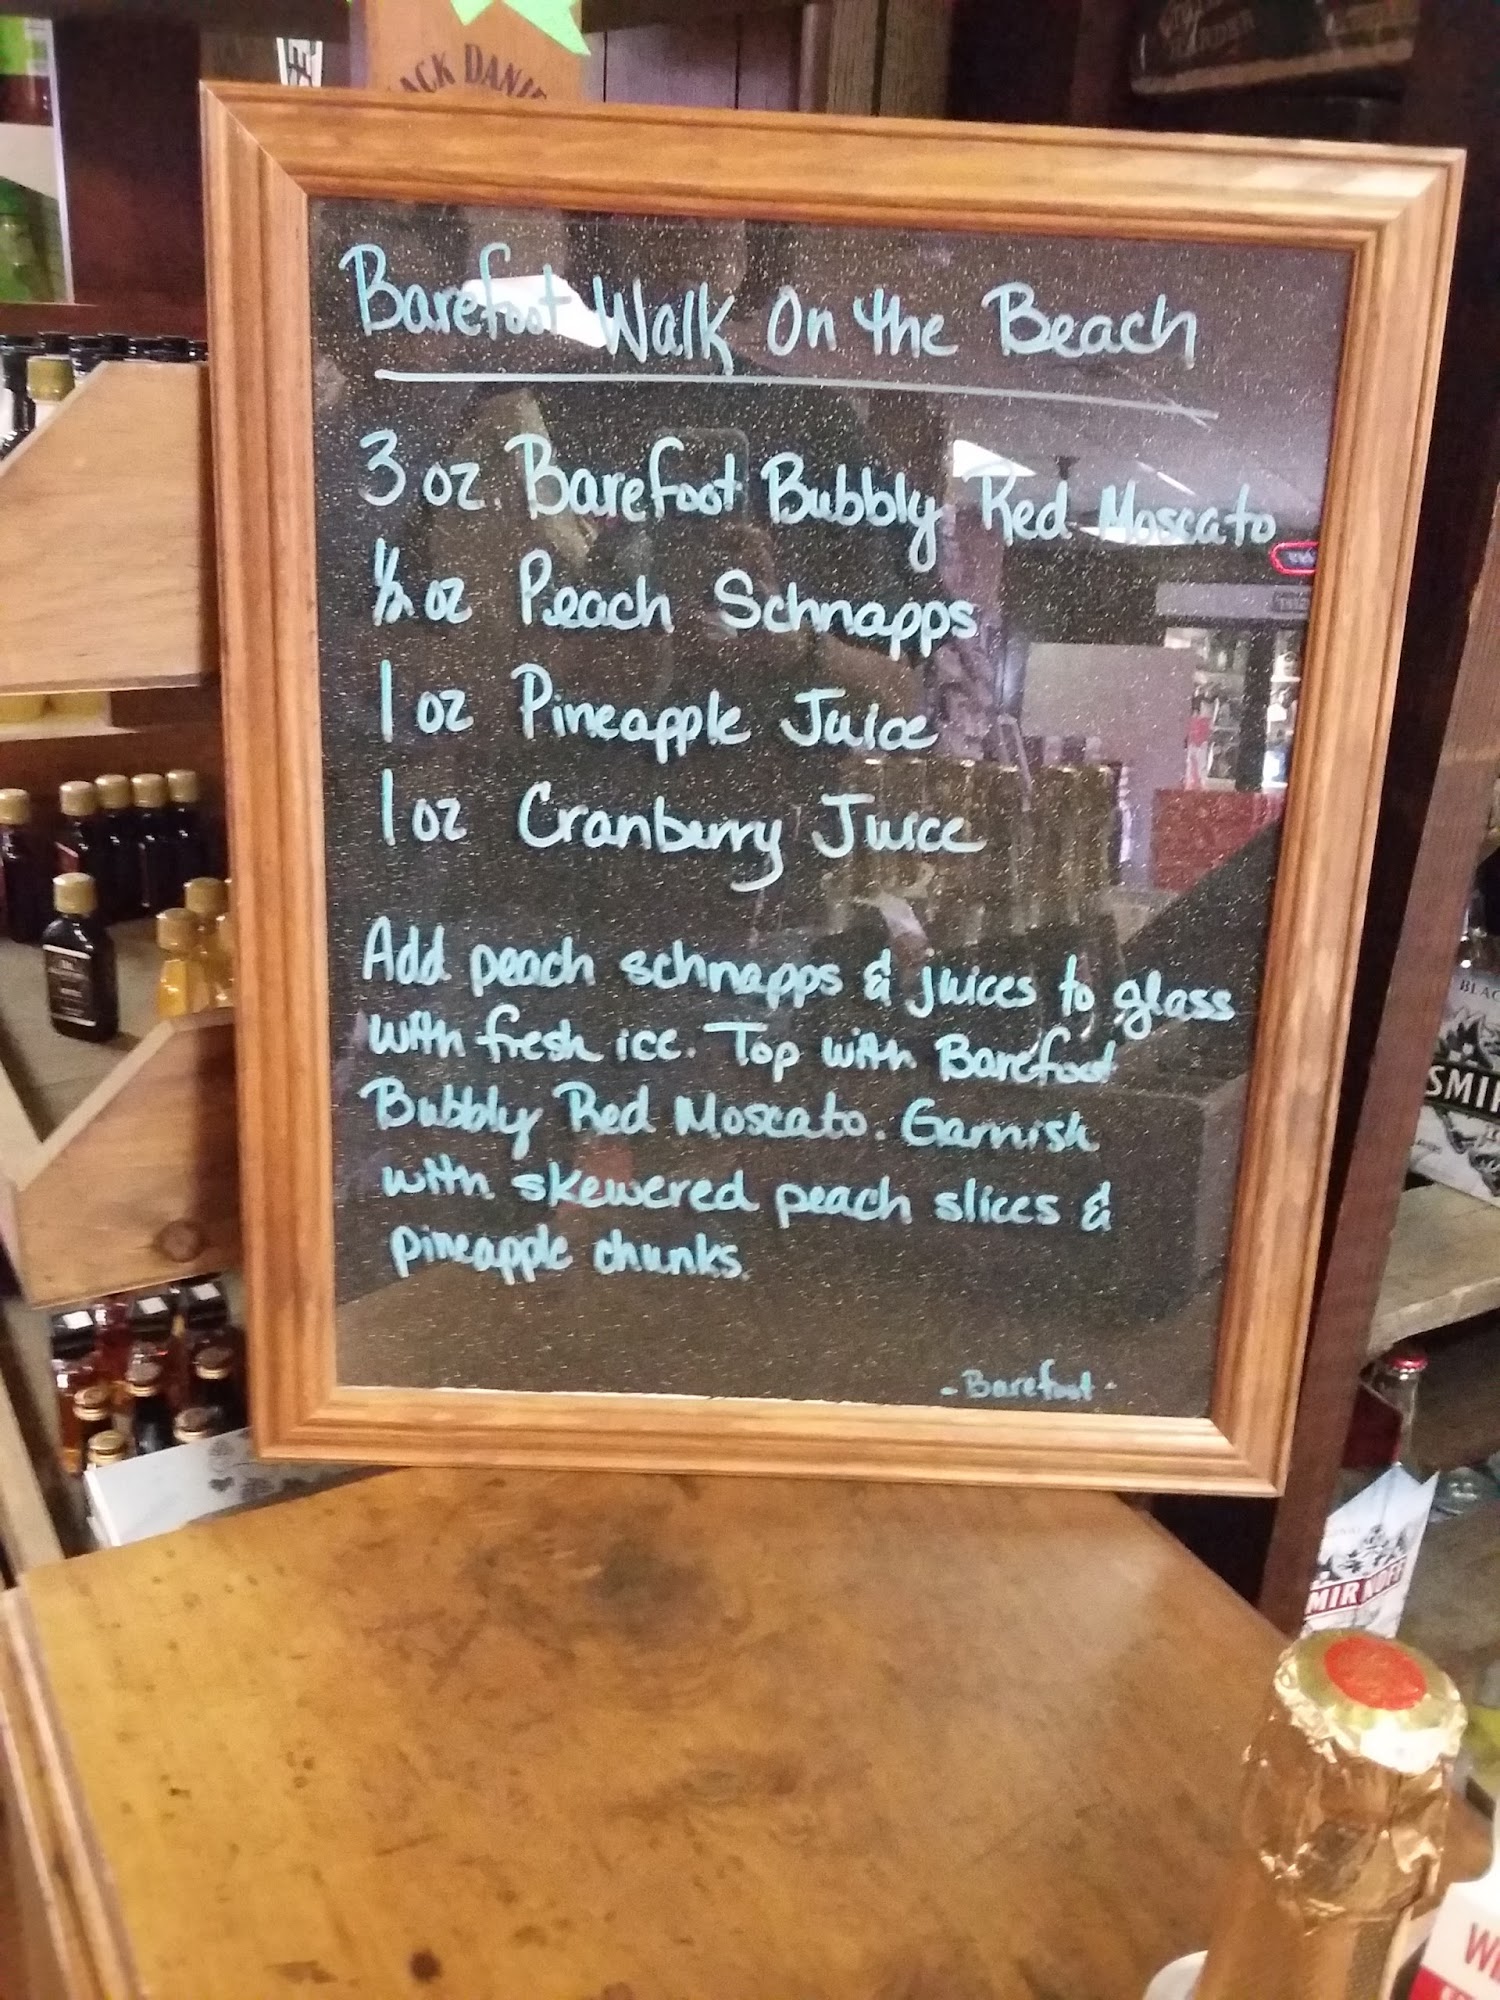 ACK DANI
Barefoot Walk On the Beach
3 oz. Barefoot Bubbly Red Moscato
1/2 oz Peach Schnapps
1 oz Pineapple Juice
1 oz Cranberry Juice
Add peach schnapps & juices to glass
with fresh ice. Top with Barefoot
Bubbly Red Moscato. Garnish
with skewered peach slices &
pineapple chunks.
- Barefoot -
BLAC
SMIR
MIRNOFF